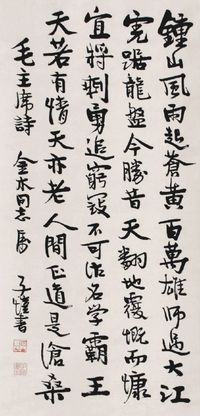 鍾山風雨起蒼黃百萬雄師過大江
虎踞龍盤今勝昔天翻地覆慨而慷
宜將剩勇追窮寇不可沽名学霸王
天若有情天亦老人間正道是滄桑
毛主席詩 金木同志屬
子愷書